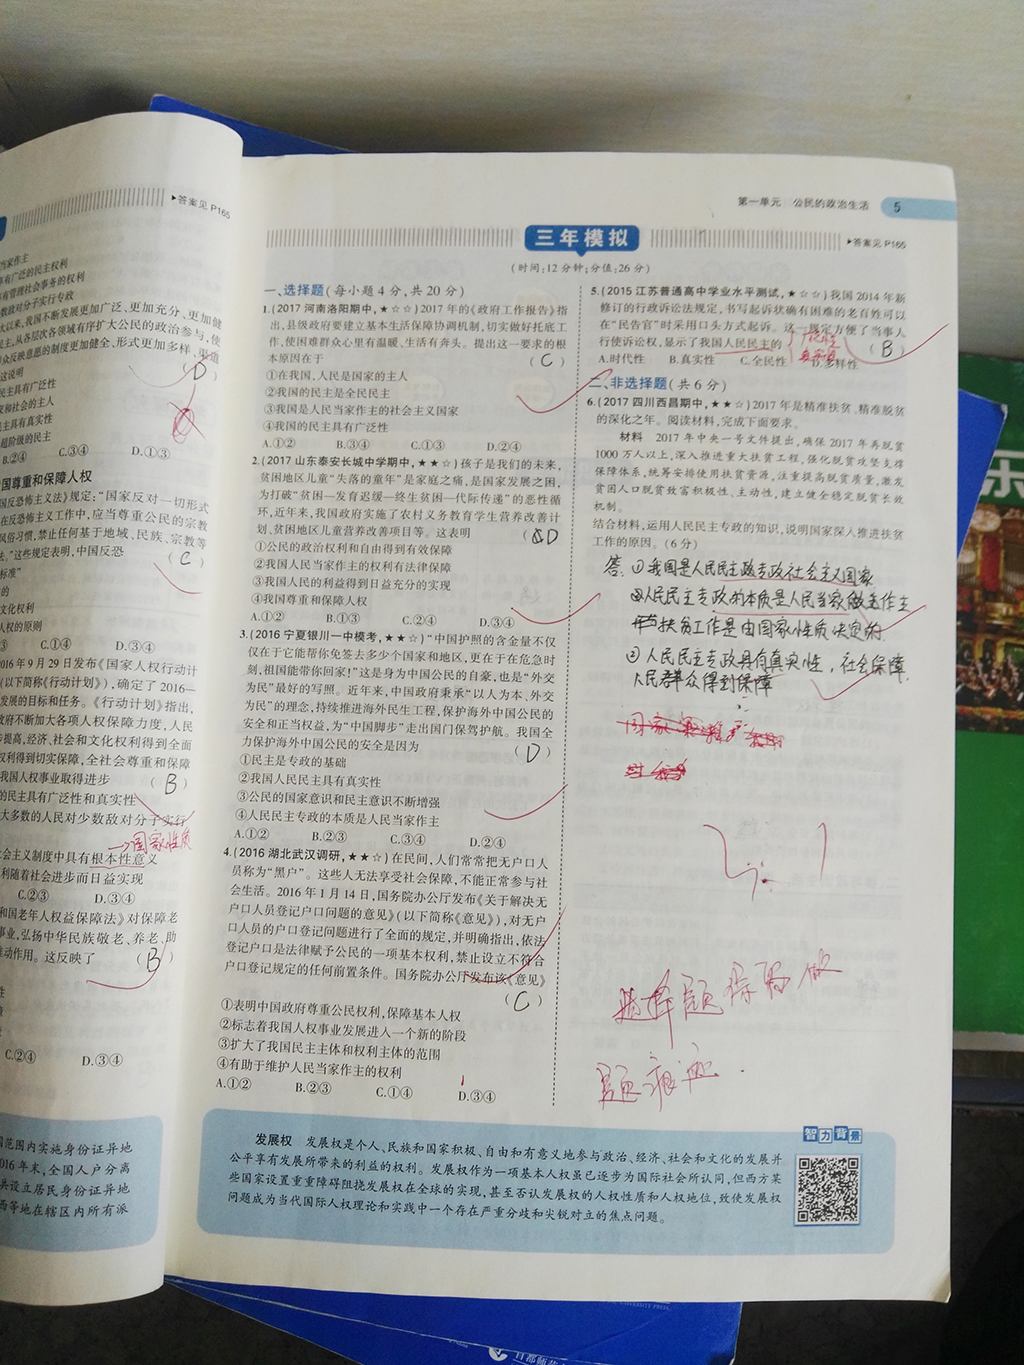 ▶答案见 P165
当家作主
享有广泛的民主权利
享有管理社会事务的权利
数敌对分子实行专政
大以来,我国不断发展更加广泛、更加充分、更加健
民主,从各层次各领域有序扩大公民的政治参与,使
众反映意愿的制度更加健全、形式更加多样、渠道
这说明
( D )
民主具有广泛性
家和社会的主人
民主具有真实性
超阶级的民主
B.②④ C.③④ D.①③
国尊重和保障人权
国反恐怖主义法》规定:“国家反对一切形式
在反恐怖主义工作中,应当尊重公民的宗教
风俗习惯,禁止任何基于地域、民族、宗教等
法。”这些规定表明,中国反恐
( C )
标准”
的
文化权利
人权的原则
C.①③ D.③④
016 年 9 月 29 日发布《国家人权行动计
(以下简称《行动计划》),确定了 2016—
发展的目标和任务。《行动计划》指出,
政府不断加大各项人权保障力度,人民
步提高,经济、社会和文化权利得到全面
权利得到切实保障,全社会尊重和保障
我国人权事业取得进步
( B )
的民主具有广泛性和真实性
大多数的人民对少数敌对分子实行
→国家性质
社会主义制度中具有根本性意义
利随着社会进步而日益实现
C.②③ D.③④
和国老年人权益保障法》对保障老
事业,弘扬中华民族敬老、养老、助
推动作用。这反映了 ( B )
C.②④ D.③④
国范围内实施身份证异地
016 年末,全国人户分离
共设立居民身份证异地
西等地在辖区内所有派
第一单元 公民的政治生活 5
三年模拟
▶答案见 P165
(时间:12 分钟;分值:26 分)
一、选择题(每小题 4 分,共 20 分)
1.(2017 河南洛阳期中,★☆☆)2017 年的《政府工作报告》指
出,县级政府要建立基本生活保障协调机制,切实做好托底工
作,使困难群众心里有温暖、生活有奔头。提出这一要求的根
本原因在于 ( C )
①在我国,人民是国家的主人
②我国的民主是全民民主
③我国是人民当家作主的社会主义国家
④我国的民主具有广泛性
A.①② B.③④ C.①③ D.②④
2.(2017 山东泰安长城中学期中,★★☆)孩子是我们的未来,
贫困地区儿童“失落的童年”是家庭之痛,是国家发展之困,
为打破“贫困—发育迟缓—终生贫困—代际传递”的恶性循
环,近年来,我国政府实施了农村义务教育学生营养改善计
划、贫困地区儿童营养改善项目等。这表明 ( D )
①公民的政治权利和自由得到有效保障
②我国人民当家作主的权利有法律保障
③我国人民的利益得到日益充分的实现
④我国尊重和保障人权
A.①② B.①③ C.②④ D.③④
3.(2016 宁夏银川一中模考,★★☆)“中国护照的含金量不仅
仅在于它能帮你免签去多少个国家和地区,更在于在危急时
刻,祖国能带你回家!”这是身为中国公民的自豪,也是“外交
为民”最好的写照。近年来,中国政府秉承“以人为本、外交
为民”的理念,持续推进海外民生工程,保护海外中国公民的
安全和正当权益,为“中国脚步”走出国门保驾护航。我国全
力保护海外中国公民的安全是因为 ( D )
①民主是专政的基础
②我国人民民主具有真实性
③公民的国家意识和民主意识不断增强
④人民民主专政的本质是人民当家作主
A.①② B.②③ C.③④ D.②④
4.(2016 湖北武汉调研,★★☆)在民间,人们常常把无户口人
员称为“黑户”。这些人无法享受社会保障,不能正常参与社
会生活。2016 年 1 月 14 日,国务院办公厅发布《关于解决无
户口人员登记户口问题的意见》(以下简称《意见》),对无户
口人员的户口登记问题进行了全面的规定,并明确指出,依法
登记户口是法律赋予公民的一项基本权利,禁止设立不符合
户口登记规定的任何前置条件。国务院办公厅发布该《意见》
( C )
①表明中国政府尊重公民权利,保障基本人权
②标志着我国人权事业发展进入一个新的阶段
③扩大了我国民主主体和权利主体的范围
④有助于维护人民当家作主的权利
A.①② B.②③ C.①④ D.③④
5.(2015 江苏普通高中学业水平测试,★☆☆)我国 2014 年新
修订的行政诉讼法规定,书写起诉状确有困难的老百姓可以
在“民告官”时采用口头方式起诉。这一规定方便了当事人
行使诉讼权,显示了我国人民民主的 ( B )
广泛性
真实性
A.时代性 B.真实性 C.全民性 D.多样性
二、非选择题(共 6 分)
6.(2017 四川西昌期中,★★☆)2017 年是精准扶贫、精准脱贫
的深化之年。阅读材料,完成下面要求。
材料 2017 年中央一号文件提出,确保 2017 年再脱贫
1000 万人以上,深入推进重大扶贫工程,强化脱贫攻坚支撑
保障体系,统筹安排使用扶贫资源,注重提高脱贫质量,激发
贫困人口脱贫致富积极性、主动性,建立健全稳定脱贫长效
机制。
结合材料,运用人民民主专政的知识,说明国家深入推进扶贫
工作的原因。(6 分)
答:①我国是人民民主专政社会主义国家
②人民民主专政的本质是人民当家做主
扶贫工作是由国家性质决定的
③人民民主专政具有真实性,社会保障
人民群众得到保障
选择题
发展权 发展权是个人、民族和国家积极、自由和有意义地参与政治、经济、社会和文化的发展并
公平享有发展所带来的利益的权利。发展权作为一项基本人权虽已逐步为国际社会所认同,但西方某
些国家设置重重障碍阻挠发展权在全球的实现,甚至否认发展权的人权性质和人权地位,致使发展权
问题成为当代国际人权理论和实践中一个存在严重分歧和尖锐对立的焦点问题。
智力背景
UNIVERSITY PRESS
首都师范
乐